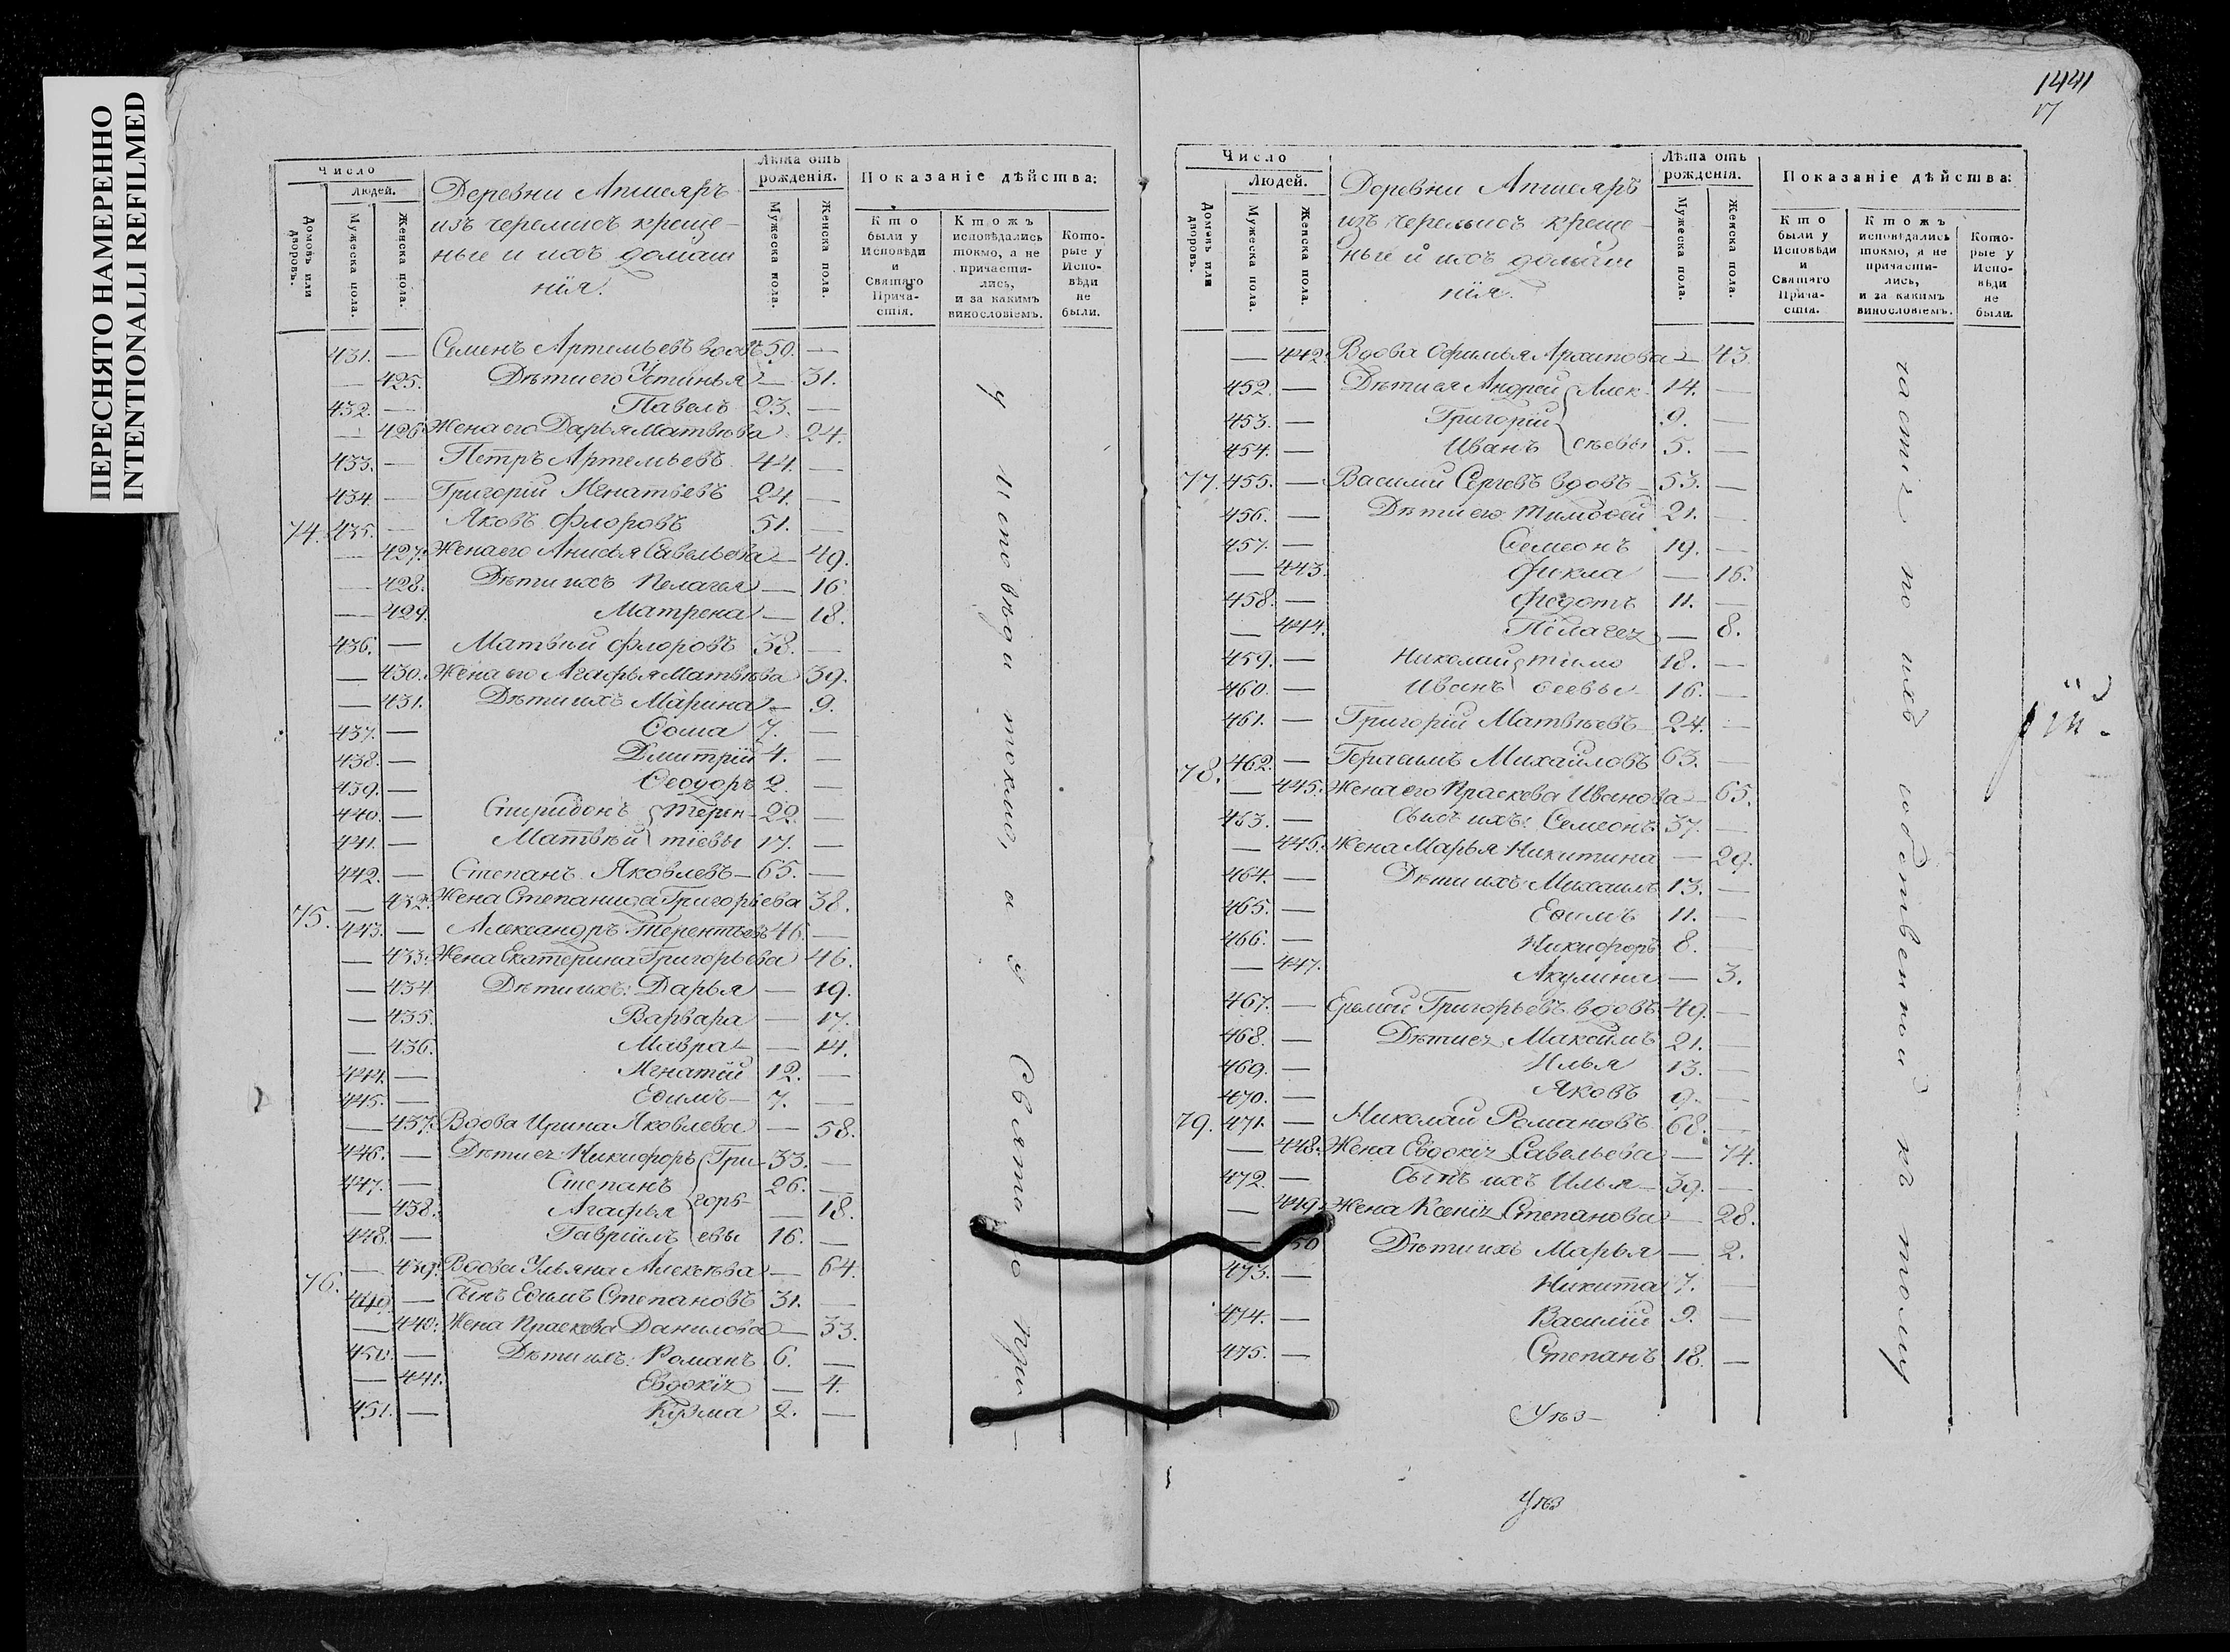 ПЕРЕСНЯТО НАМЕРЕННО
INTENTIONALLI REFILMED
Число
Людей.
Домовъ или дворовъ.
Мужеска пола.
Женска пола.
Деревни Апшеяръ
изъ черемисъ креще-
ные и ихъ домаш
нія.
Лѣта отъ рожденія.
Мужеска пола.
Женска пола.
Показаніе дѣйства:
Кто были у Исповѣди и Святаго Прича-стія.
Ктожъ исповѣдались токмо, а не причасти-лись, и за какимъ винословіемъ.
Кото-рые у Испо-вѣди не были.
431. — Семенъ Артемьевъ вдовъ 50. —
— 425. Дѣти его Устинья — 31.
432. — Павелъ 23. —
— 426. Жена его Дарья Матвѣева 24.
433. — Петръ Артемьевъ 44. —
434. — Григорій Игнатьевъ 24. —
74. 435. — Яковъ Флоровъ 51. —
— 427. Жена его Анисья Савельева — 49.
— 428. Дѣти ихъ Пелагея — 16
— 429. Матрена — 18.
436. — Матвѣй Флоровъ 38. —
— 430. Жена его Агафья Матвѣева 39.
— 431. Дѣти ихъ Марина — 9.
437. — Ѳома 7. —
438. — Дмитрій 4. —
439. — Ѳеодоръ 2. —
440. — Спиридонъ Терен- 22. —
441. — Матвѣй тіевы 17. —
442. — Степанъ Яковлевъ — 65. —
— 432. Жена Степанида Григорьева 38.
75. 443. — Александръ Терентьевъ 46. —
— 433. Жена Екатерина Григорьева 46.
— 434. Дѣти ихъ: Дарья — 19.
— 435. Варвара — 17.
— 436. Мавра — 14.
444. — Игнатій 12. —
445. — Еѳимъ — 7. —
— 437. Вдова Ирина Яковлева — 58.
446. — Дѣти ея Никифоръ Гри- 33. —
447. — Степанъ 26. —
— 438. Агафья горь- — 18.
448. — Гавріилъ евы 16. —
— 439. Вдова Ульяна Алексѣева — 64.
76. 449. — Сынъ Еѳимъ Степановъ 31. —
— 440. Жена Праскева Данилова — 33.
450. — Дѣти ихъ: Романъ 6. —
— 441. Евдокія — 4.
451. — Кузма 2. —
у Исповѣди токмо, а у Святаго При-
1441
17
Число
Людей.
Домовъ или дворовъ.
Мужеска пола.
Женска пола.
Деревни Апшеяръ
изъ черемисъ креще-
ные и ихъ домаш
нія.
Лѣта отъ рожденія.
Мужеска пола.
Женска пола.
Показаніе дѣйства:
Кто были у Исповѣди и Святаго Прича-стія.
Ктожъ исповѣдались токмо, а не причасти-лись, и за какимъ винословіемъ.
Кото-рые у Испо-вѣди не были.
— 442. Вдова Офимья Архипова — 43.
452. — Дѣти ея Андрей Алек- 14. —
453. — Григорій 9. —
454. — Иванъ сѣевы 5. —
77. 455. — Василій Сергѣевъ вдовъ — 53. —
456. — Дѣти его Тимоѳей 21. —
457. — Семеонъ 19. —
— 443. Фикла — 16.
458. — Федотъ 11. —
— 444. Пелагея — 8.
459. — Николай Тимо 18. —
460. — Иванъ ѳеевы 16. —
461. — Григорій Матвѣевъ 24. —
78. 462. — Герасимъ Михайловъ 63. —
— 445. Жена его Праскева Иванова — 65.
463. — Сынъ ихъ: Семеонъ 37. —
— 446. Жена Марья Никитина — 29.
464. — Дѣти ихъ: Михаилъ 13. —
465. — Еѳимъ 11. —
466. — Никифоръ 8. —
— 447. Акулина — 3.
467. — Еремей Григорьевъ вдовъ 49. —
468. — Дѣти ея Максимъ 21. —
469. — Илья 13. —
470. — Яковъ 9. —
79. 471. — Николай Романовъ 68. —
— 448. Жена Евдокія Савельева — 74.
472. — Сынъ ихъ Илья — 39. —
— 449. Жена Ксенія Степанова — 28.
— 50 Дѣти ихъ Марья — 2.
473. — Никита 7. —
474. — Василій 9. —
475. — Степанъ 18. —
частія по ихъ собственной къ тому
Уѣз-
Уѣз